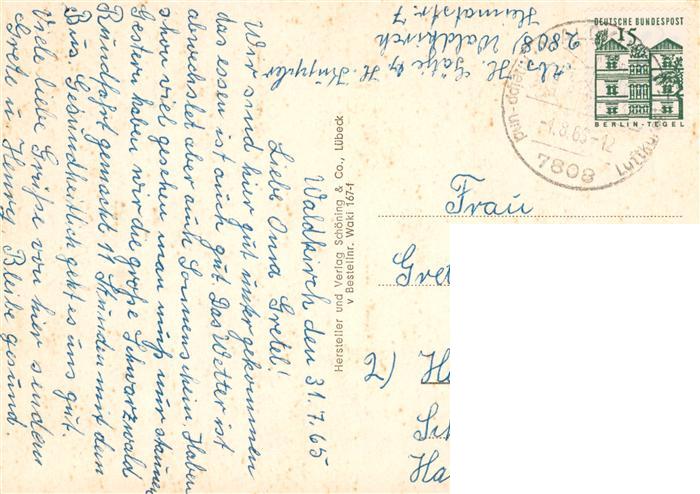 Waldkirch den 31.7.65
Liebe Oma Gretel!
Wir sind hier gut untergekommen
das essen ist auch gut. Das Wetter ist
abwechslet aber auch Sonnenschein. Haben
shon viel gesehen man muß nur staunen
Gestern haben wir die große Schwarzwald
Rundfahrt gemacht 11 Stunden mit dem
Bus. Gesundheitlich geht es uns gut.
Viele liebe Grüße von hier senden
Grete u. Henry Bleibe gesund
Abs. H. Götje bz H. Küppler
7808 Waldkirch
Heimatstr. 7
Hersteller und Verlag Schöning & Co., Lübeck
v Bestellnr. Waki 1674
DEUTSCHE BUNDESPOST
15
BERLIN-TEGEL
-1.8.65-12
7808
Frau
Gret
2) H
Sch
Ha